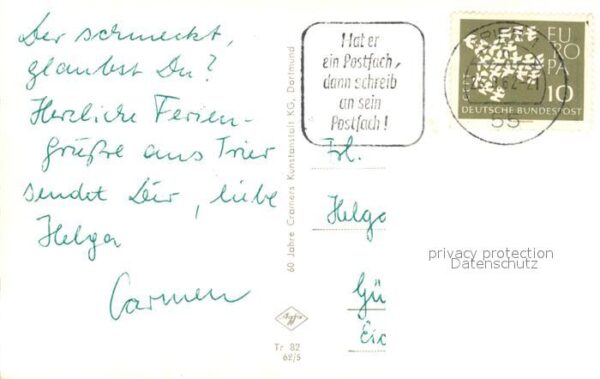 Der schmeckt,
glaubst Du?
Herzliche Ferien-
grüße aus Trier
sendet Dir, liebe
Helga
Carmen
60 Jahre Cramers Kunstanstalt KG, Dortmund
Agfa
Tr 82
62/5
Hat er
ein Postfach,
dann schreib
an sein
Postfach!
EU
RO
PA
10
DEUTSCHE BUNDESPOST
55
Frl.
Helga
Gü
Eic
privacy protection
Datenschutz